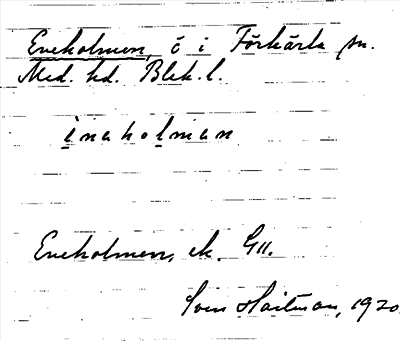 Eneholmen, ö i Förkärla sn.
Med. hd. Blek. l.
ịnahoḷman
Eneholmen, ek. G11.
Sven Hartman, 1920.